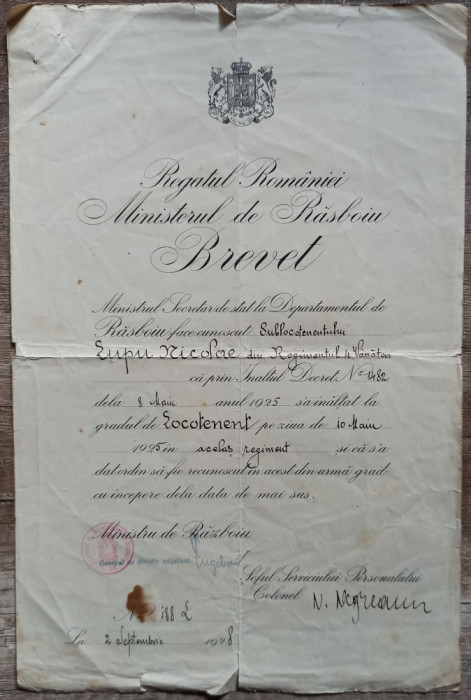 Regatul României
Ministerul de Răsboiu
Brevet
Ministrul Secretar de stat la Departamentul de
Răsboiu face cunoscut Sublocotenentului
Lupu Nicolae din Regimentul 4 Vânători
că prin Inaltul Decret No 1482
dela 8 Maiu anul 1925 s'a înălțat la
gradul de Locotenent pe ziua de 10 Maiu
1925 în acelaș regiment și că s'a
dat ordin să fie recunoscut în acest din urmă grad
cu începere dela data de mai sus.
Ministru de Războiu
General de divizie adjutant
Șeful Serviciului Personalului
Colonel N. Negreanu
No 188 L
La 2 Septembrie 1928